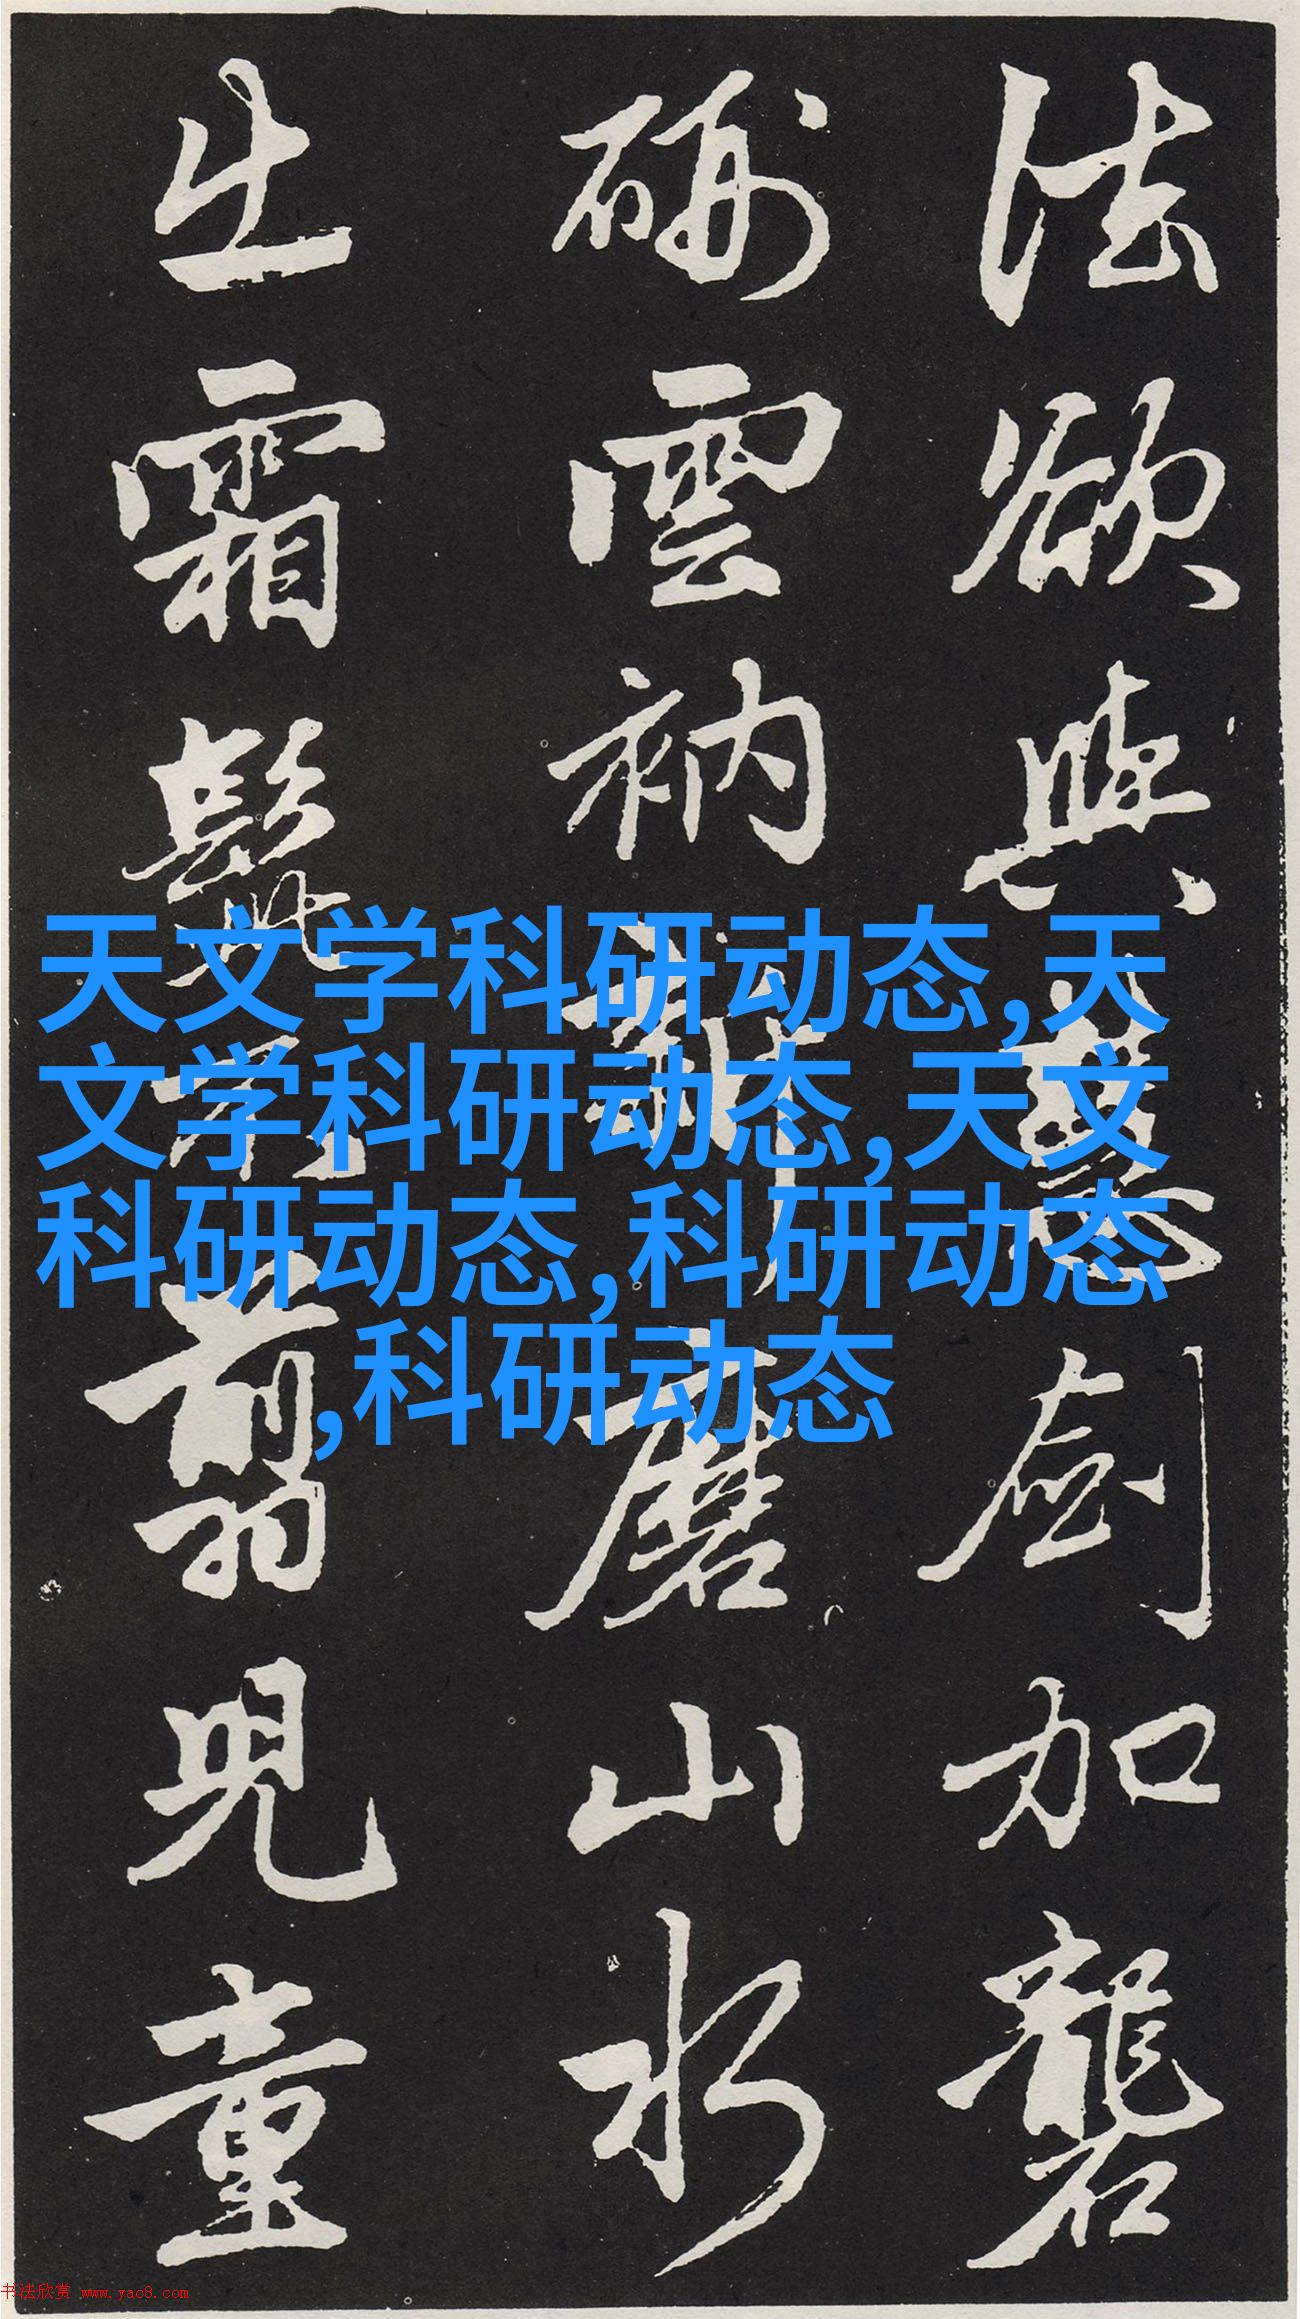 法欲與慧劍加礱
硎雲衲新磨山水
出霜髭不翦兒童
天文学科研动态,天
文学科研动态,天文
科研动态,科研动态
,科研动态
书法欣赏 www.yac8.com